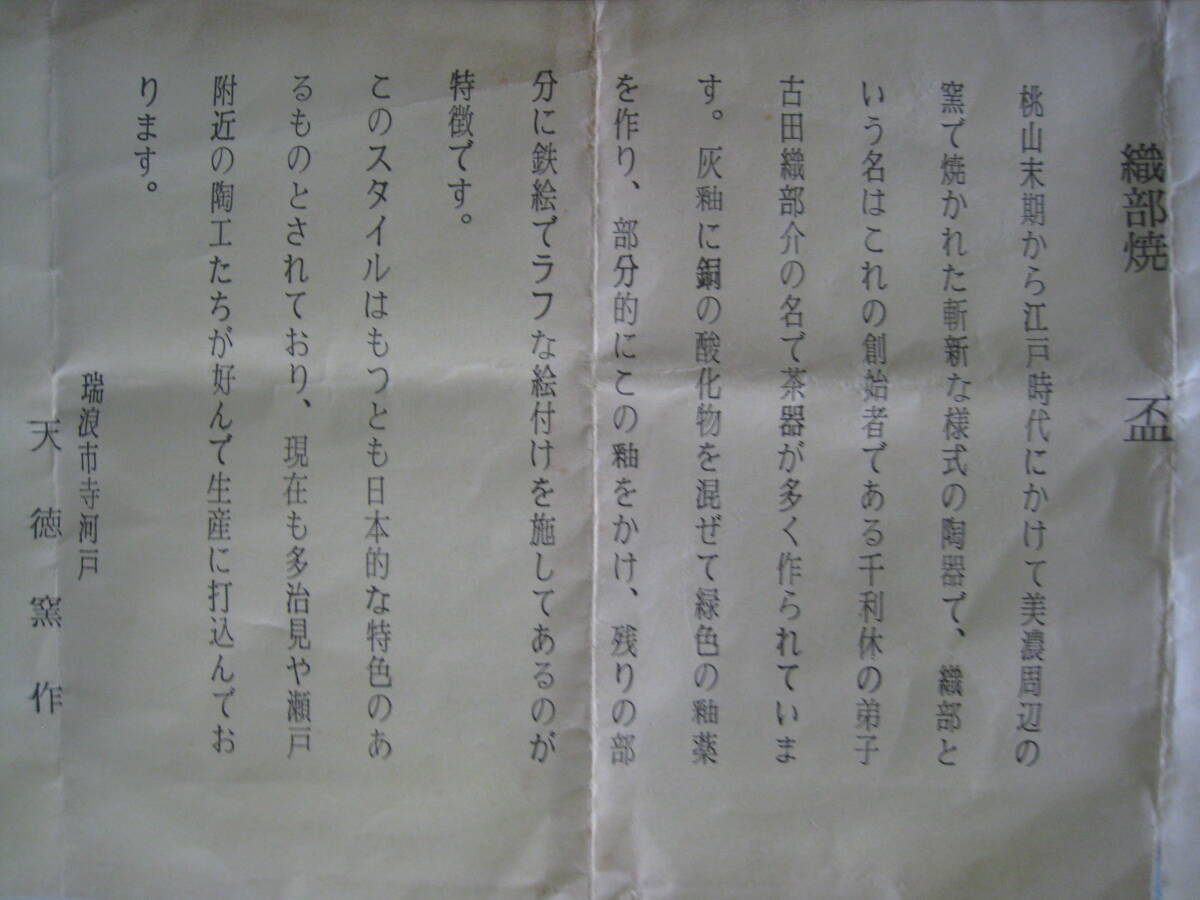 織部焼　盃
桃山末期から江戸時代にかけて美濃周辺の
窯で焼かれた斬新な様式の陶器で、織部と
いう名はこれの創始者である千利休の弟子
古田織部介の名で茶器が多く作られていま
す。灰釉に銅の酸化物を混ぜて緑色の釉薬
を作り、部分的にこの釉をかけ、残りの部
分に鉄絵でラフな絵付けを施してあるのが
特徴です。
このスタイルはもつとも日本的な特色のあ
るものとされており、現在も多治見や瀬戸
附近の陶工たちが好んで生産に打込んでお
ります。
瑞浪市寺河戸
天徳窯作